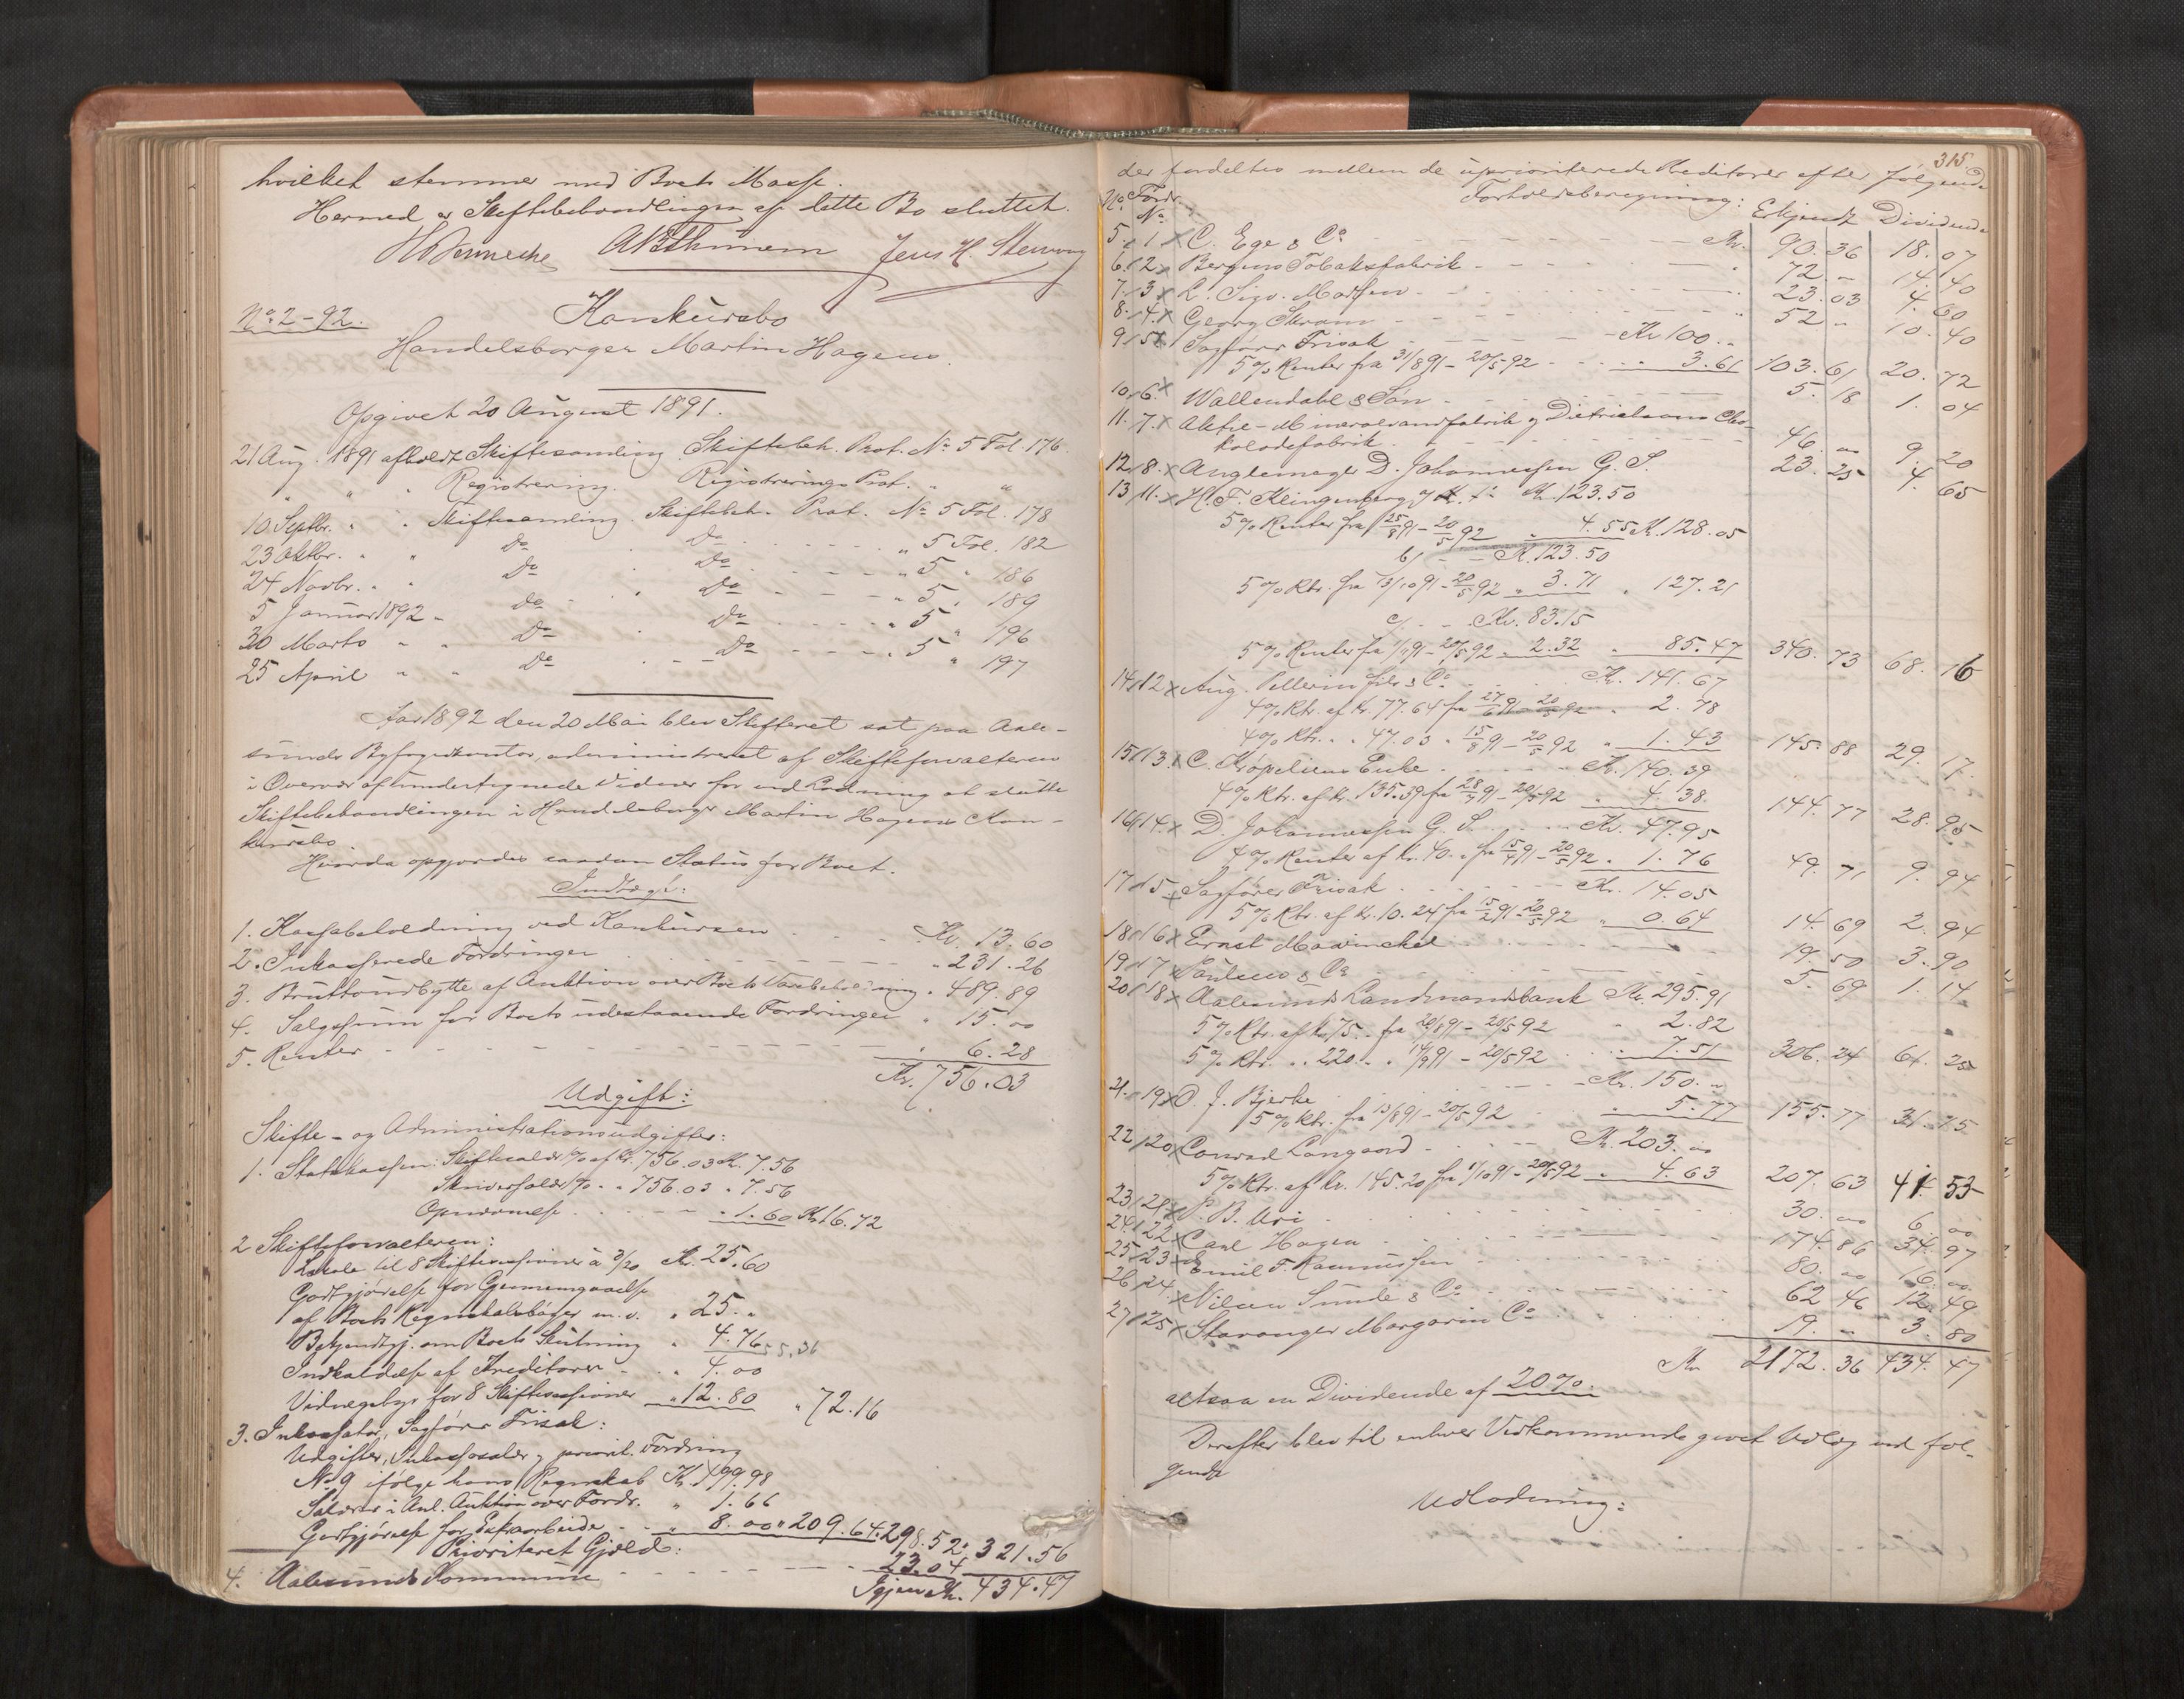 hvilket stemmer med Boets Masse.
Hermed er Skiftebehandlingen af dette Bo sluttet.
Jens H.
No 2-92.
Konkursbo
Handelsborger Martin Hagens.
Opgivet 20 August 1891.
21 Aug. 1891 afholdt Skiftesamling Skiftebeh. Prot. No 5 Fol. 176
" " " Registrering. Registrerings Prot. " "
10 Septbr. " " Skiftesamling. Skiftebeh. Prot. No 5 Fol. 178
23 Oktbr. " " do do " 5 Fol. 182
24 Novbr. " " do do " 5 " 186
5 Januar 1892 " do do " 5 " 189
30 Marts " " do do " 5 " 196
25 April " " do do " 5 " 197
Aar 1892 den 20 Mai blev Skifteret sat paa Aale-
sunds Byfogedkontor, administreret af Skifteforvalteren
i Overvær af undertegnede Vidner for ved Lodning at slutte
Skiftebehandlingen i Handelsborger Martin Hagens Kon-
kursbo.
Hvorda opgjordes saadan Status for Boet.
Indtægt:
1. Kassabeholdning ved Konkursen Kr. 13.60
2. Inkasserede Fordringer " 231.26
3. Bruttoudbytte af Auktion over Boets Varebeholdning " 489.89
4. Salgssum for Boets udestaaende Fordringer " 15.00
5. Renter " 6.28
Kr. 756.03
Udgift:
Skifte- og Administrationsudgifter:
1. Statskassen: Skiftesalær % af Kr. 756.03 Kr. 7.56
Skriversalær % " " 756.03 " 7.56
" 1.60 Kr. 16.72
2 Skifteforvalteren:
Lokale til 8 Skiftesessioner à 3/20 Kr. 25.60
Godtgjørelse for Gjennemgaaelse
af Boets Regnskabsbøger m.v. " 25. "
Bekjendtgj. om Boets Slutning " 4.76 55.36
Indkaldelse af Kreditorer " 4.00
Vidnegebyr for 8 Skiftesessioner " 12.80 " 72.16
3. Inkassator, Sagfører Frisak:
Udgifter, Inkassosalær og priorit. Fordring
No 9 ifølge hans Regnskab Kr. 199.98
Salær i Anl. Auktion over Fordr. " 1.66
Godtgjørelse for Extraarbeide " 8.00 " 209.64 298.52
Prioriteret Gjæld:
4. Aalesunds Kommune 23.04 321.56
Igjen Kr. 434.47
315
der fordeltes mellem de uprioriterede Kreditorer efter følgende
Forholdsberegning:
No Fordr. No Erkjendt Dividende
5. 1 x C. Ege & Co Kr. 90.36 18.07
6. 2 x Bergens Tobaksfabrik " 72. – 14.40
7. 3 x L. Sigv. Madsen " 23.03 4.60
8. 4. x Georg Skram " 52 " 10.40
9 5 x Sagfører Frisak Kr 100 "
5% Renter fra 31/8 91 - 20/5 92 " 3.61 103.61 20.72
10. 6. x Wallendahl & Søn 5.18 1.04
11. 7. x Aktie-Mineralvandfabrik og Dietrichsons Cho-
koladefabrik 46.00 9.20
12. 8. x D. Johannessen G. S. 23.25 4.65
13 11. x H. F. Klingenberg Kr. 123.50
5% Renter fra 25/8 91 - 20/5 92 4.55 Kr. 128.05
b/ – – Kr. 123.50
5% Rtr. fra 13/10 91 - 20/5 92 " 3.71 " 127.21
c/ – – Kr. 83.15
5% Renter fra 1/11 91 - 20/5 92 " 2.32 " 85.47 340.73 68.16
14 12 x Aug. Pellerin fils & Co Kr. 141.67
4% Rtr. af Kr. 77.64 fra 27/6 91 - 20/5 92 " 2.78
4% Rtr. " " 47.03 " 15/8 91 - 20/5 92 " 1.43 145.88 29.17.
15 13. x C. Kröpeliens Enke Kr. 140.39
4% Rtr. af Kr. 135.39 fra 28/7 91 - 20/5 92 " 4.38. 144.77 28.95
16 14. x D. Johannessen G. S. Kr. 47.95
4% Renter af Kr. 40. " fra 15/4 91 - 20/5 92 " 1.76 49.71 9.94
17 15 x Sagfører Frisak Kr. 14.05
5% Rtr. af Kr. 10.24 fra 15/2 91 - 20/5 92 " 0.64 14.69 2.94
18 16 x Ernst Mowinckel 19.50 3.90
19 17 x Paulsen & Co 5.69 1.14
20 18 x Aalesunds Landmandsbank Kr. 295.91
5% Rtr. af Kr. 75. – fra 20/8 91 - 20/5 92 " 2.82
5% Rtr. " " 220. " " 14/9 91 - 20/5 92 " 7.51 306.24 61.25
21. 19 x O. J. Bjerke Kr. 150. "
5% Rtr. fra 13/8 91 - 20/5 92 " 5.77 155.77 31.15
22 20 x Conrad Langaard Kr. 203.00
5% Rtr. af Kr. 145.20 fra 1/10 91 - 20/5 92 " 4.63 207.63 41.53
23 21 x P. B. Uri 30.00 6.00
24. 22 x Carl Hagen 174.86 34.97
25 23 x Emil F. Rasmussen 80.00 16.00
26 24. x Nilsen Sunde & Co 62 46 12.49
27 25 x Stavanger Margarin Co 19. – 3.80
Kr. 2172.36 434.47
altsaa en Dividende af 20%.
Derefter blev til enhver Vedkommende givet Udlæg ved føl-
gende
Udlodning: